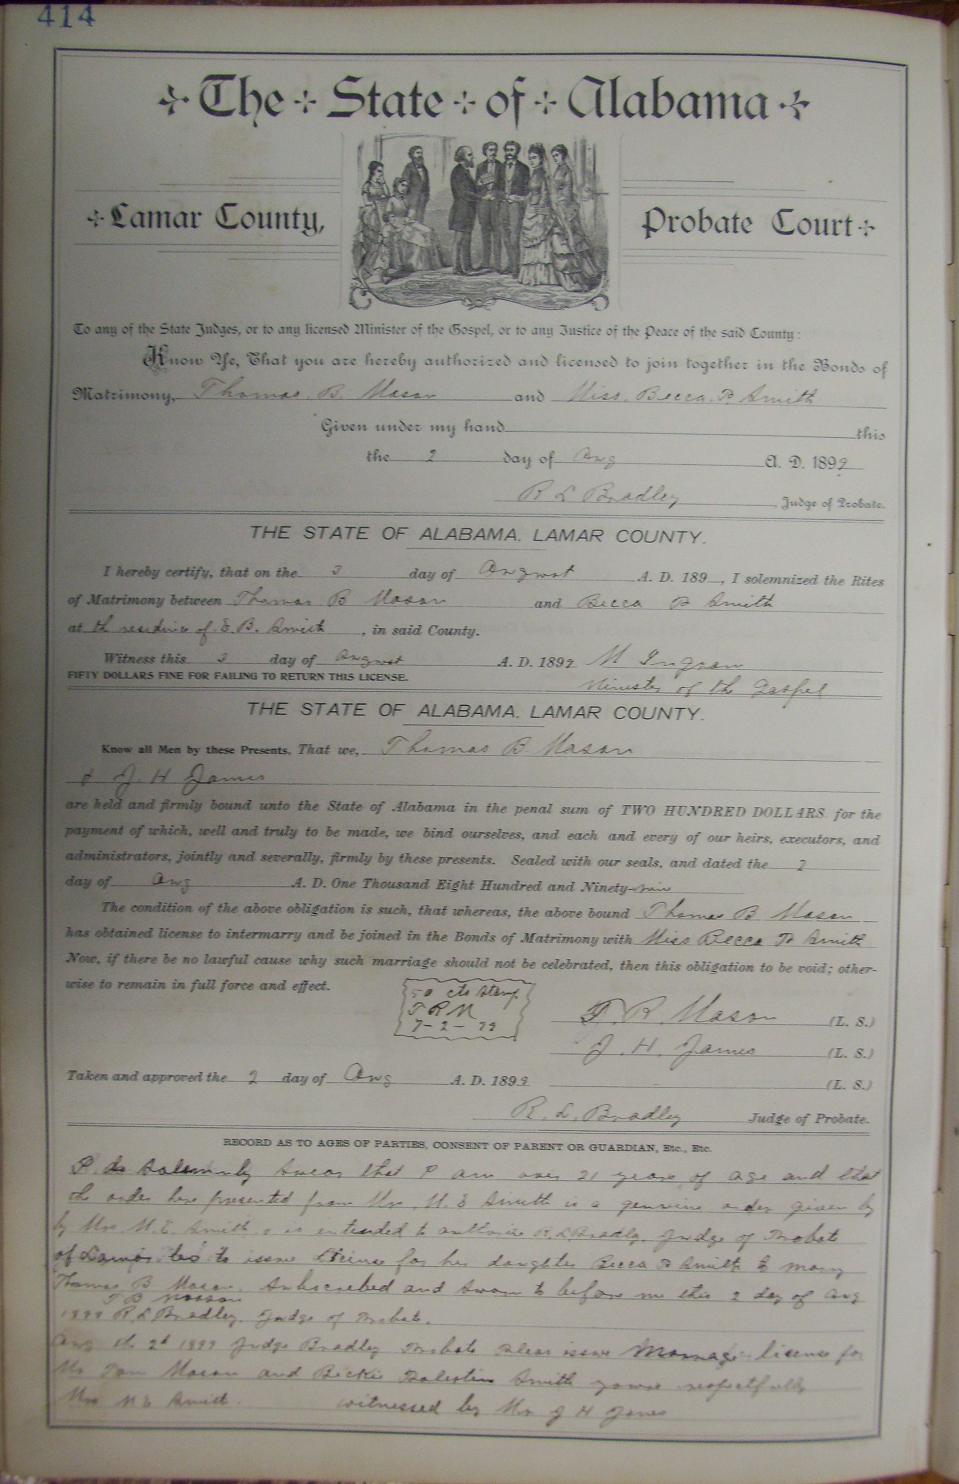 414
The State of Alabama
Lamar County, Probate Court
To any of the State Judges, or to any licensed Minister of the Gospel, or to any Justice of the Peace of the said County:
Know Ye, That you are hereby authorized and licensed to join together in the Bonds of
Matrimony, Thomas B. Mason and Miss. Becca P. Smith
Given under my hand this
the 2 day of Aug A. D. 1899
R L Bradley Judge of Probate.
THE STATE OF ALABAMA, LAMAR COUNTY.
I hereby certify, that on the 3 day of August A. D. 189 , I solemnized the Rites
of Matrimony between Thomas B Mason and Becca P Smith
at th residence of E. B. Smith , in said County.
Witness this 3 day of August A. D. 1899 M Ingram
FIFTY DOLLARS FINE FOR FAILING TO RETURN THIS LICENSE. Minister of the Gospel
THE STATE OF ALABAMA, LAMAR COUNTY.
Know all Men by these Presents, That we, Thomas B Mason
& J. H James
are held and firmly bound unto the State of Alabama in the penal sum of TWO HUNDRED DOLLARS for the
payment of which, well and truly to be made, we bind ourselves, and each and every of our heirs, executors, and
administrators, jointly and severally, firmly by these presents. Sealed with our seals, and dated the 2
day of Aug A. D. One Thousand Eight Hundred and Ninety-nine
The condition of the above obligation is such, that whereas, the above bound Thomas B Mason
has obtained license to intermarry and be joined in the Bonds of Matrimony with Miss Becca P Smith
Now, if there be no lawful cause why such marriage should not be celebrated, then this obligation to be void; other-
wise to remain in full force and effect.
50 cts Stamp
7-2-99
Mason (L. S.)
J. H. James (L. S.)
Taken and approved the 2 day of Aug A. D. 1899 (L. S.)
R. L. Bradley Judge of Probate.
RECORD AS TO AGES OF PARTIES, CONSENT OF PARENT OR GUARDIAN, Etc., Etc.
I do Solemnly Swear that I am over 21 years of age and that
the order here presented from Mrs. M. E Smith is a genuine order given by
by Mrs. M. E. Smith & is intended to authorize R L Bradley, Judge of Probate
of Lamar to issue license for her daughter Becca P Smith to marry
Thomas B Mason. Subscribed and Sworn to before me this 2 day of Aug
T B Mason
1899 R L Bradley. Judge of Probate.
Aug th 2d 1899 Judge Bradley Probate Pleas issue Marriage license for
Mr Tom Mason and Smith yours respectfully
Mrs M E Smith. witnessed by Mr J H James